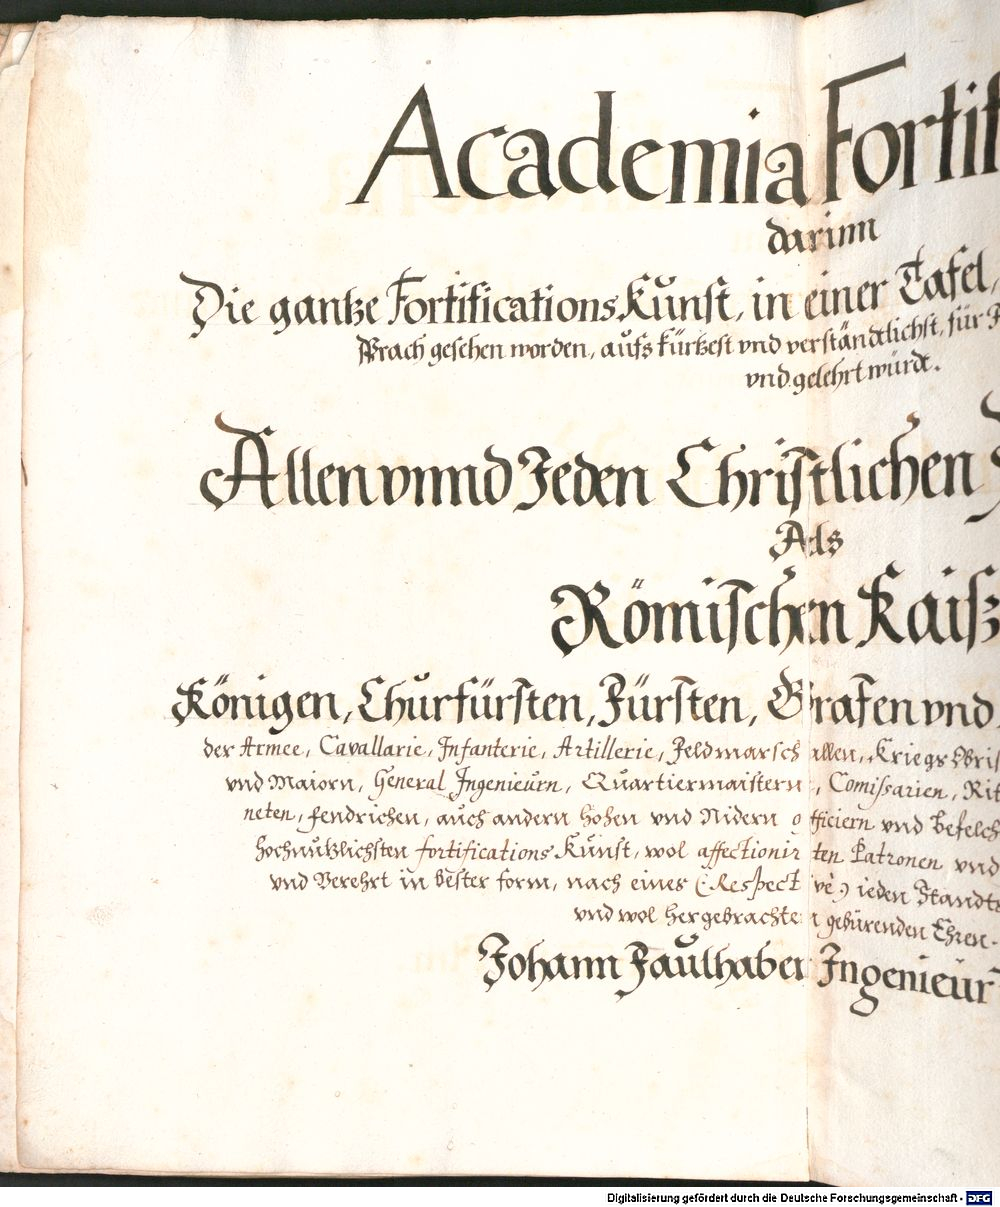 Academia Fortif
darinn
Die gantze Fortifications Kunst, in einer Tafel,
Sprach gesehen worden, aufs kürtzest vnd verständtlichst, für
vnd gelehrt würdt.
Allen vnnd Jeden Christlichen
Als
Römischen Kaiß
Königen, Churfürsten, Fürsten, Grafen vnd
der Armee, Cavallarie, Infanterie, Artillerie, Feldmarschallen, Kriegs Obris
vnd Maiorn, General Ingenieurn, Quartiermaistern, Comissarien, Rit
neten, fendrichen, auch andern hohen vnd Nidern officiern vnd befelch
hochnutzlichsten fortifications Kunst, wol affectionirten Patronen vnd
vnd Verehrt in bester form, nach eines (: Respective :) ieden Standts
vnd wol hergebrachten gebürenden Ehren.
Johann Faulhaber Ingenieur
Digitalisierung gefördert durch die Deutsche Forschungsgemeinschaft - DFG